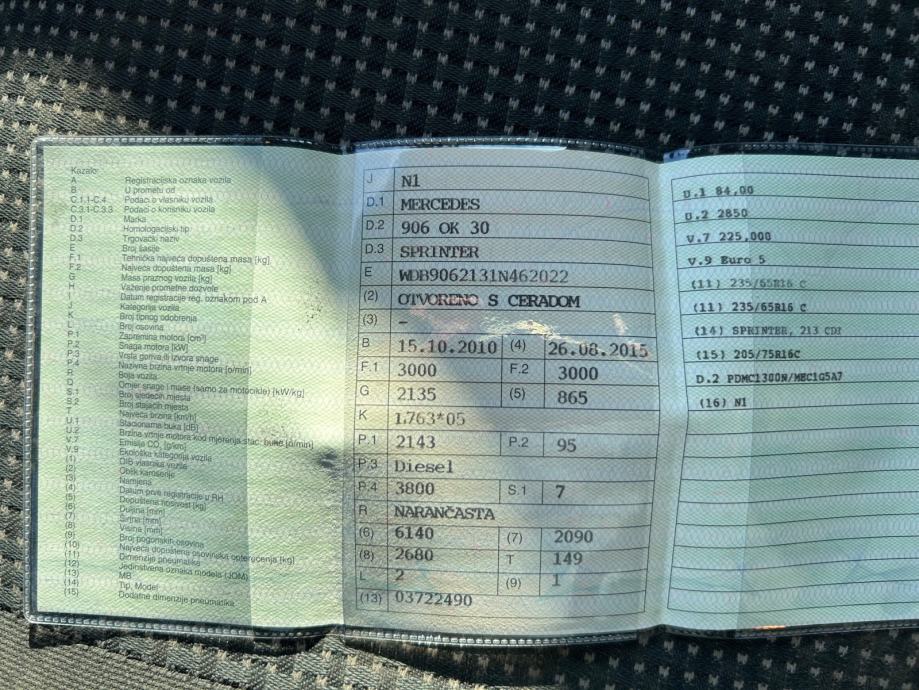 Kazalo:
A Registracijska oznaka vozila
B U prometu od
C.1.1-C.4 Podaci o vlasniku vozila
C.3.1-C.3.3 Podaci o korisniku vozila
D.1 Marka
D.2 Homologacijski tip
D.3 Trgovački naziv
E Broj šasije
F.1 Tehnička najveća dopuštena masa [kg]
F.2 Najveća dopuštena masa [kg]
G Masa praznog vozila [kg]
H Važenje prometne dozvole
I Datum registracije reg. oznakom pod A
J Kategorija vozila
K Broj tipnog odobrenja
L Broj osovina
P.1 Zapremina motora [cm³]
P.2 Snaga motora [kW]
P.3 Vrsta goriva ili izvora snage
P.4 Nazivna brzina vrtnje motora [o/min]
R Boja vozila
Q Omjer snage i mase (samo za motocikle) [kW/kg]
S.1 Broj sjedećih mjesta
S.2 Broj stajaćih mjesta
T Najveća brzina [km/h]
U.1 Stacionarna buka [dB]
U.2 Brzina vrtnje motora kod mjerenja stac. buke [o/min]
V.7 Emisija CO₂ [g/km]
V.9 Ekološka kategorija vozila
(1) OIB vlasnika vozila
(2) Oblik karoserije
(3) Namjena
(4) Datum prve registracije u RH
(5) Dopuštena nosivost [kg]
(6) Duljina [mm]
(7) Širina [mm]
(8) Visina [mm]
(9) Broj pogonskih osovina
(10) Najveća dopuštena osovinska opterućenja [kg]
(11) Dimenzije pneumatika
(12) Jedinstvena oznaka modela (JOM)
(13) MB
(14) Tip, Model
(15) Dodatne dimenzije pneumatika
J N1
D.1 MERCEDES
D.2 906 OK 30
D.3 SPRINTER
E WDB9062131N462022
(2) OTVORENO S CERADOM
(3) –
B 15.10.2010 (4) 26.08.2015
F.1 3000 F.2 3000
G 2135 (5) 865
K L763*05
P.1 2143 P.2 95
P.3 Diesel
P.4 3800 S.1 7
R NARANČASTA
(6) 6140 (7) 2090
(8) 2680 T 149
L 2 (9) 1
(13) 03722490
U.1 84,00
U.2 2850
V.7 225,000
V.9 Euro 5
(11) 235/65R16 C
(11) 235/65R16 C
(14) SPRINTER, 213 CDI
(15) 205/75R16C
D.2 PDMC1300N/MEC1G5A7
(16) N1